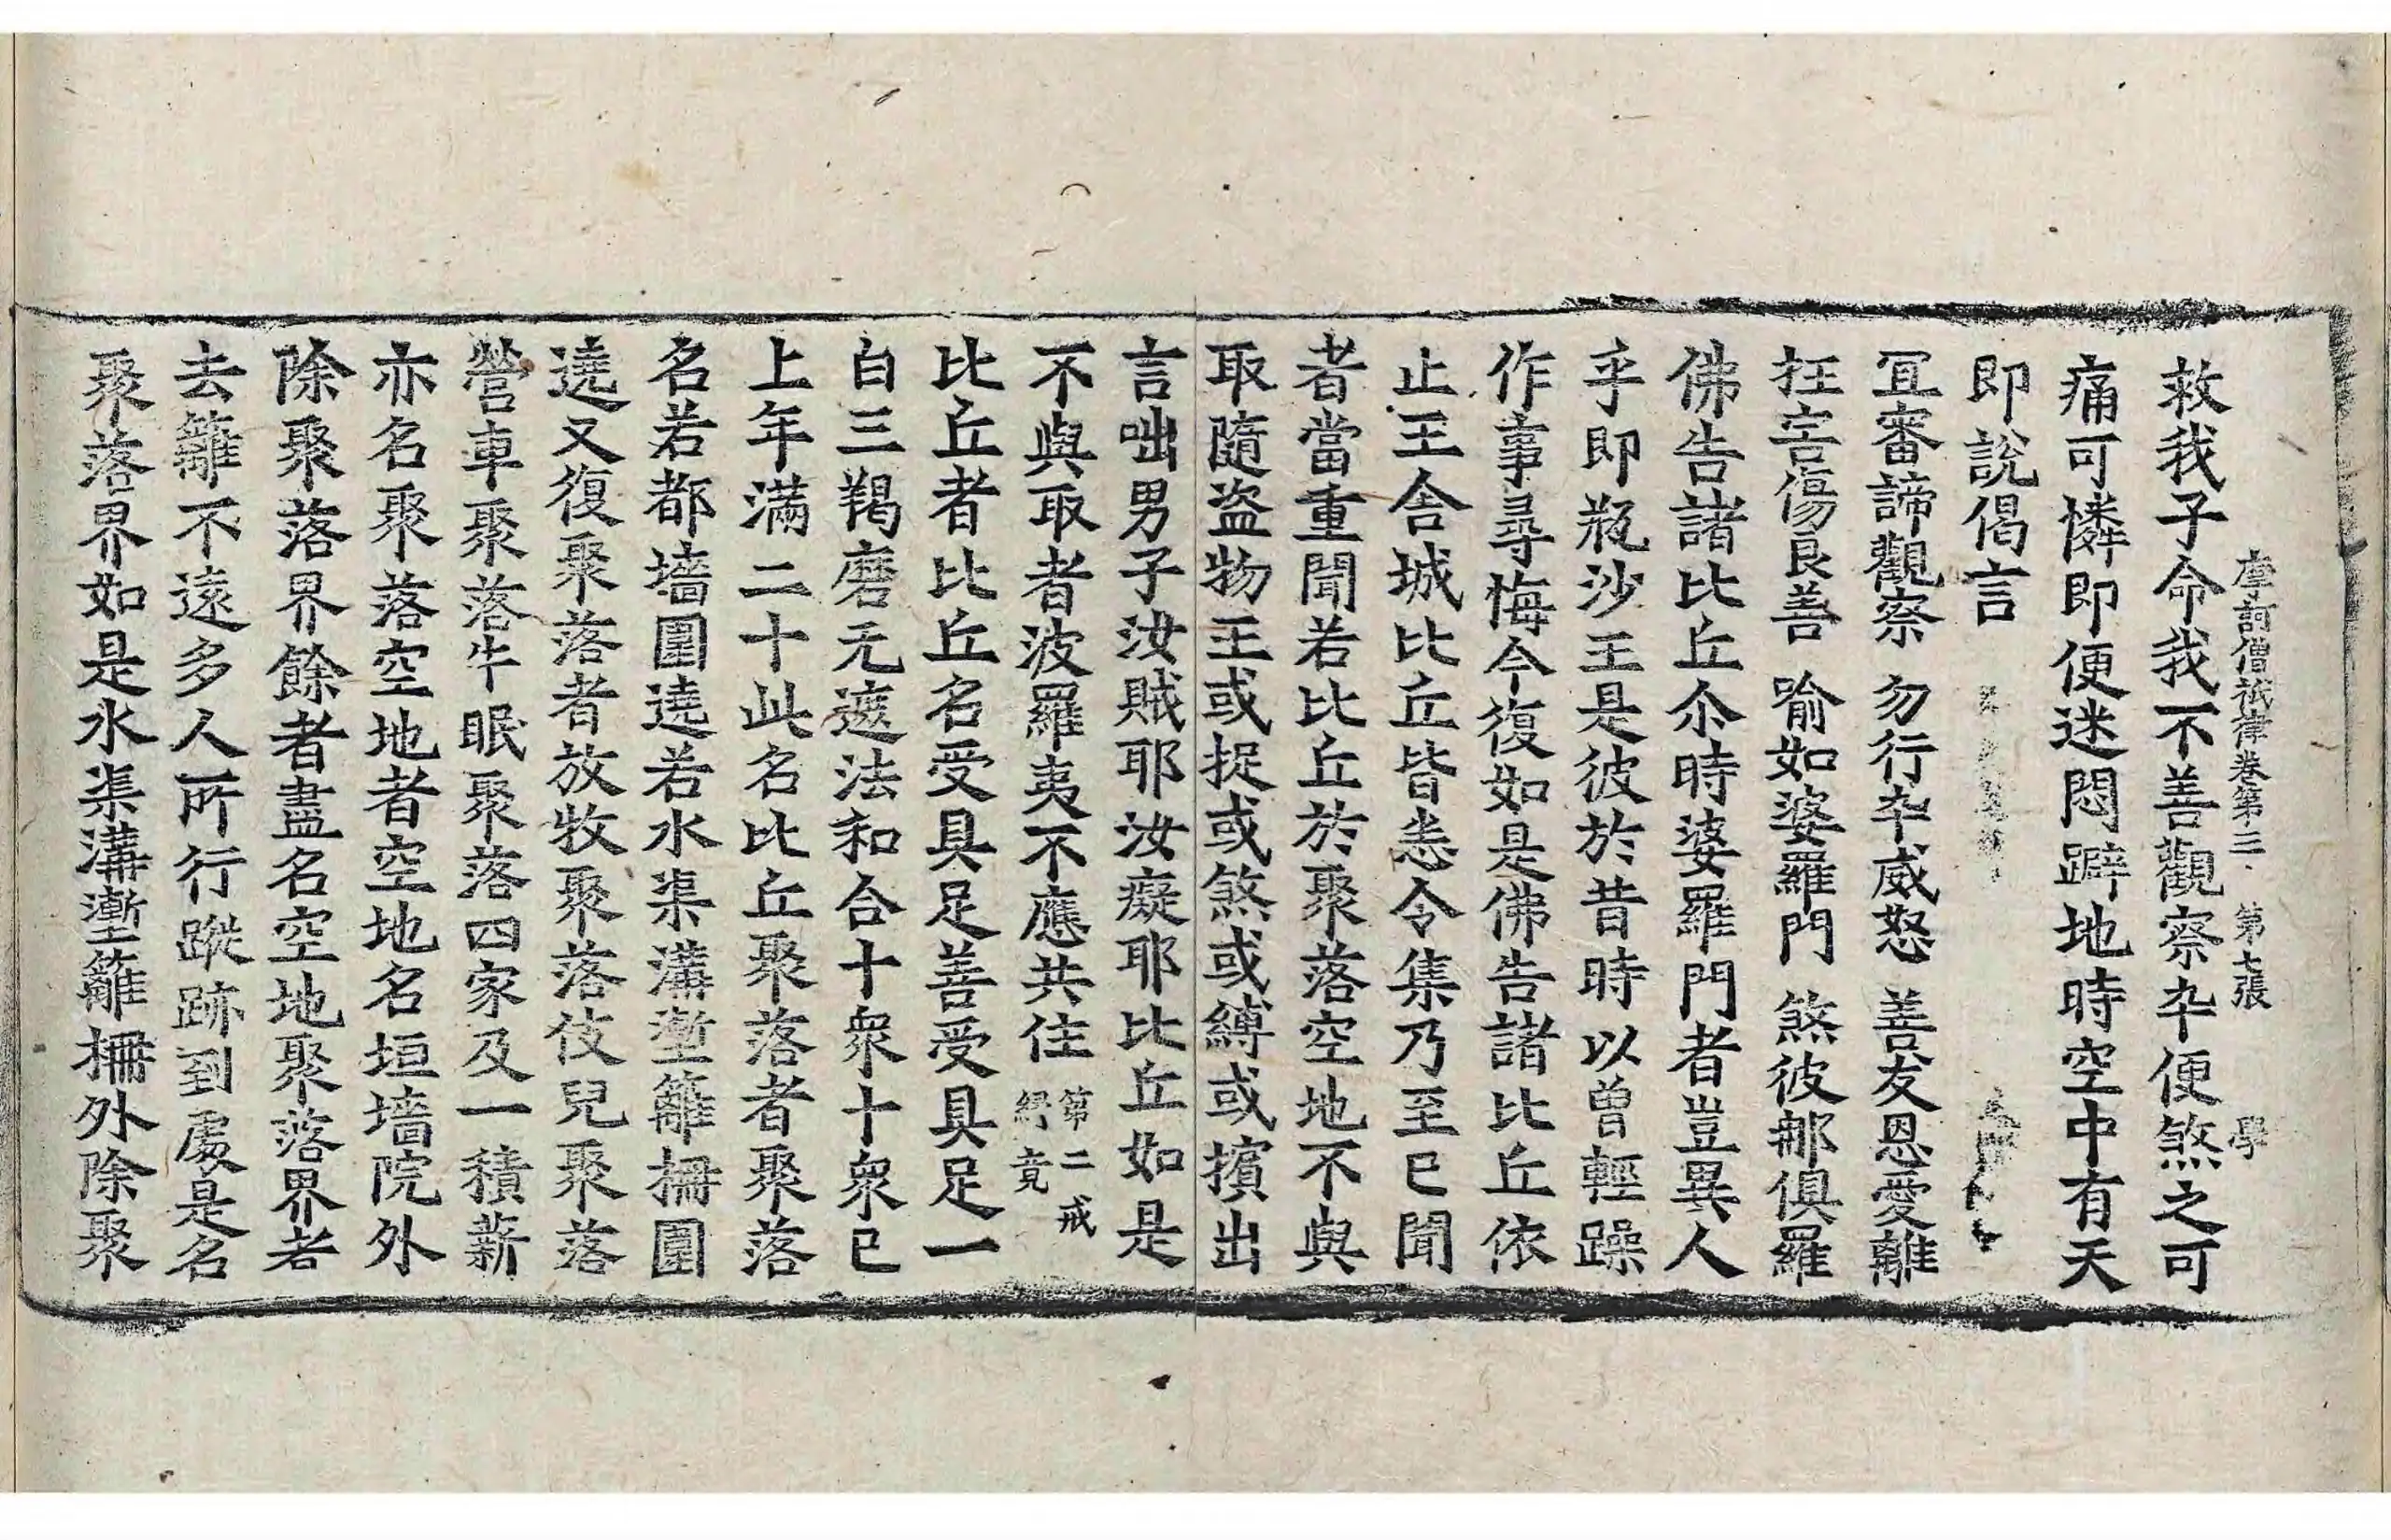 摩訶僧祇律卷第三 第七張 學
救我子命我不善觀察卒便煞之可
痛可憐即便迷悶躃地時空中有天
即說偈言
冝審諦觀察 勿行卒威怒 善友恩愛離
抂害傷良善 喻如婆羅門 煞彼那俱羅
佛告諸比丘尒時婆羅門者豈異人
乎即瓶沙王是彼於昔時以曽輕躁
作事尋悔今復如是佛告諸比丘依
止王舍城比丘皆悉令集乃至已聞
者當重聞若比丘於聚落空地不與
取隨盗物王或捉或煞或縛或擯出
言咄男子汝賊耶汝癡耶比丘如是
不與取者波羅夷不應共住 第二戒緣竟
比丘者比丘名受具足善受具足一
白三羯磨无遮法和合十衆十衆已
上年滿二十此名比丘聚落者聚落
名若都墻圍遶若水渠溝塹籬栅圍
遶又復聚落者放牧聚落伎兒聚落
營車聚落牛眠聚落四家及一積薪
亦名聚落空地者空地名垣墻院外
除聚落界餘者盡名空地聚落界者
去籬不遠多人所行蹤跡到處是名
聚落界如是水渠溝塹籬栅外除聚